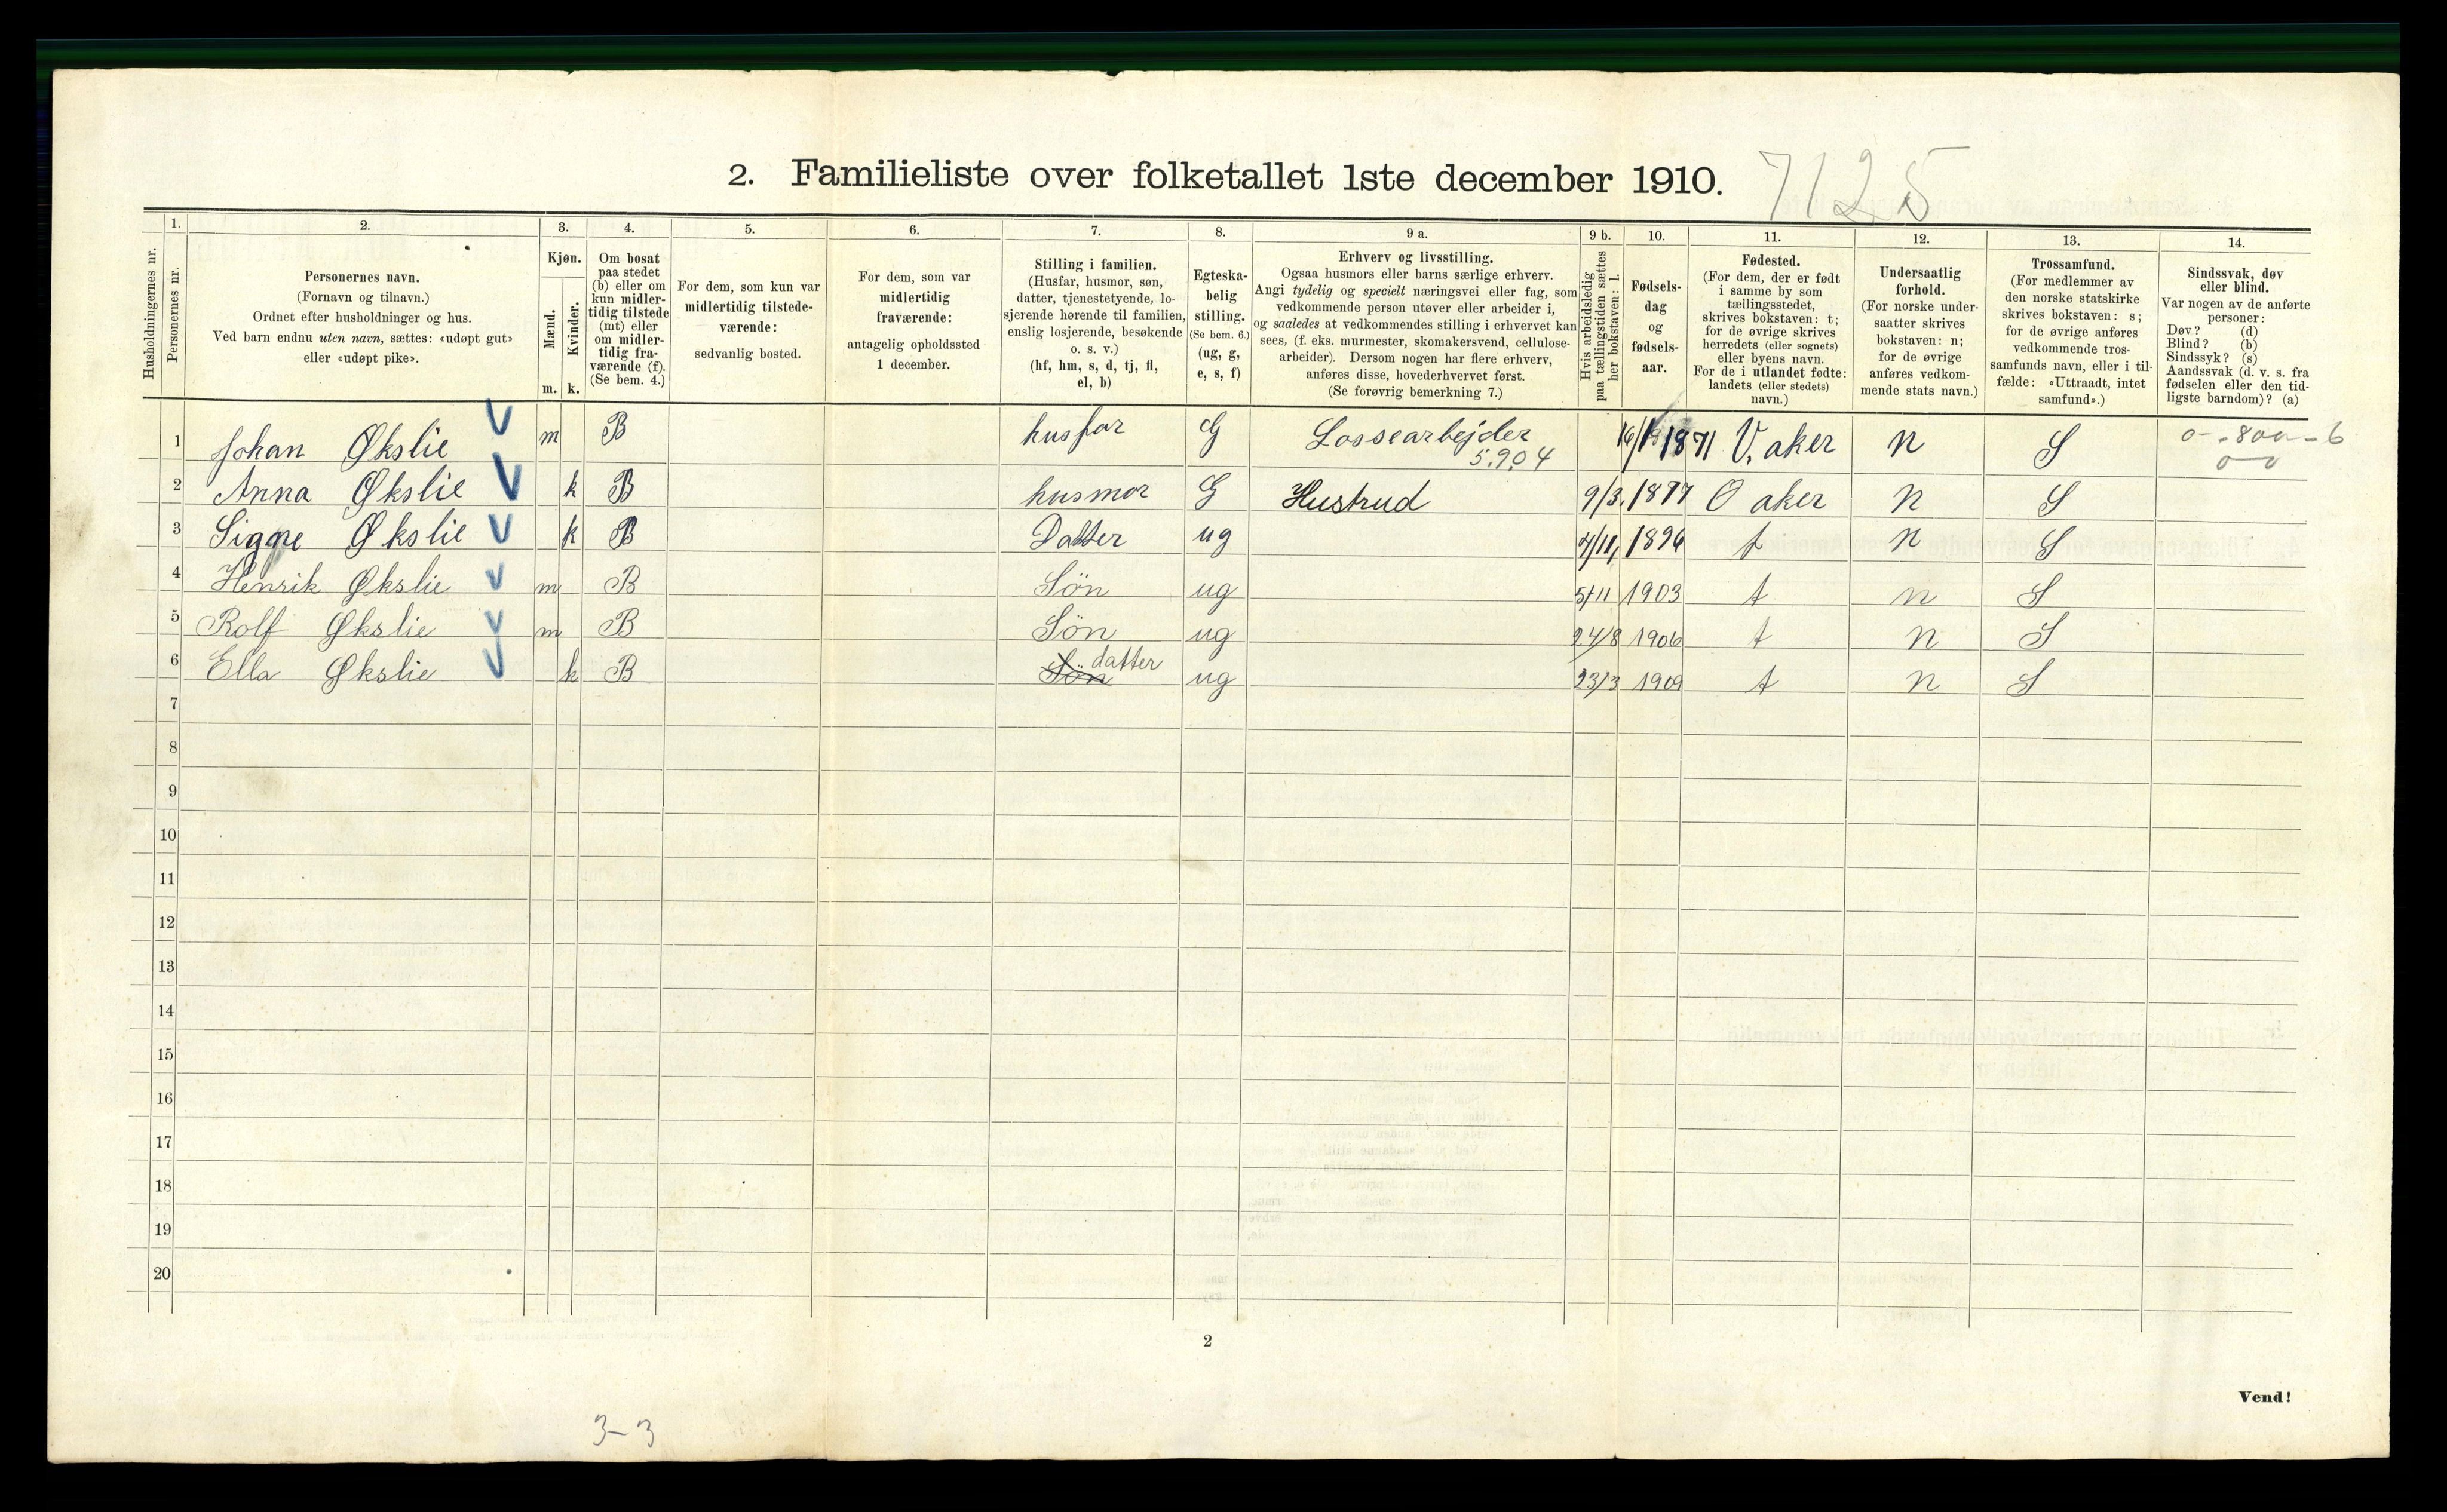 2. Familieliste over folketallet 1ste december 1910.
7125
Husholdningernes nr.
1.
Personernes nr.
2.
Personernes navn.
(Fornavn og tilnavn.)
Ordnet efter husholdninger og hus.
Ved barn endnu uten navn, sættes: «udøpt gut»
eller «udøpt pike».
3.
Kjøn.
Mænd.
m.
Kvinder.
k.
4.
Om bosat
paa stedet
(b) eller om
kun midler-
tidig tilstede
(mt) eller
om midler-
tidig fra-
værende (f).
(Se bem. 4.)
5.
For dem, som kun var
midlertidig tilstede-
værende:
sedvanlig bosted.
6.
For dem, som var
midlertidig
fraværende:
antagelig opholdssted
1 december.
7.
Stilling i familien.
(Husfar, husmor, søn,
datter, tjenestetyende, lo-
sjerende hørende til familien,
enslig losjerende, besøkende
o. s. v.)
(hf, hm, s, d, tj, fl,
el, b)
8.
Egteska-
belig
stilling.
(Se bem. 6.)
(ug, g,
e, s, f)
9 a.
Erhverv og livsstilling.
Ogsaa husmors eller barns særlige erhverv.
Angi tydelig og specielt næringsvei eller fag, som
vedkommende person utøver eller arbeider i,
og saaledes at vedkommendes stilling i erhvervet kan
sees, (f. eks. murmester, skomakersvend, cellulose-
arbeider). Dersom nogen har flere erhverv,
anføres disse, hovederhvervet først.
(Se forøvrig bemerkning 7.)
9 b.
Hvis arbeidsledig
paa tællingstiden sættes
her bokstaven: l.
10.
Fødsels-
dag
og
fødsels-
aar.
11.
Fødested.
(For dem, der er født
i samme by som
tællingsstedet,
skrives bokstaven: t;
for de øvrige skrives
herredets (eller sognets)
eller byens navn.
For de i utlandet fødte:
landets (eller stedets)
navn.)
12.
Undersaatlig
forhold.
(For norske under-
saatter skrives
bokstaven: n;
for de øvrige
anføres vedkom-
mende stats navn.)
13.
Trossamfund.
(For medlemmer av
den norske statskirke
skrives bokstaven: s;
for de øvrige anføres
vedkommende tros-
samfunds navn, eller i til-
fælde: «Uttraadt, intet
samfund».)
14.
Sindssvak, døv
eller blind.
Var nogen av de anførte
personer:
Døv? (d)
Blind? (b)
Sindssyk? (s)
Aandssvak (d. v. s. fra
fødselen eller den tid-
ligste barndom)? (a)
1 Johan Økslie V m B husfar G Lossearbejder 1871 V. aker n S
5.904
2 Anna Økslie V k B husmor G Hustrud 9/3. 1877 O aker n S
3 Signe Økslie V k B Datter ug 1896 t n S
4 Henrik Økslie V m B Sön ug 5/11 1903 t n S
5 Rolf Økslie V m B Sön ug 24/8 1906 t n S
6 Ella Økslie V k B Sön datter ug 23/3 1909 t n S
7
8
9
10
11
12
13
14
15
16
17
18
19
20
2
Vend!
3-3